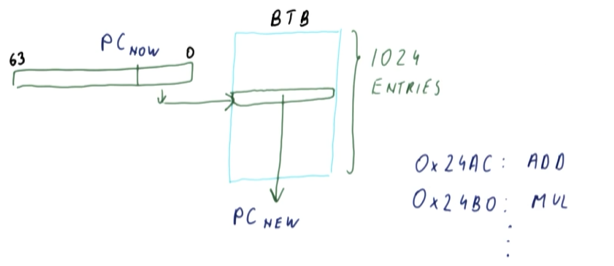 BTB
63
PC NOW
0
1024
ENTRIES
PC NEW
0x24AC: ADD
0x24B0: MUL